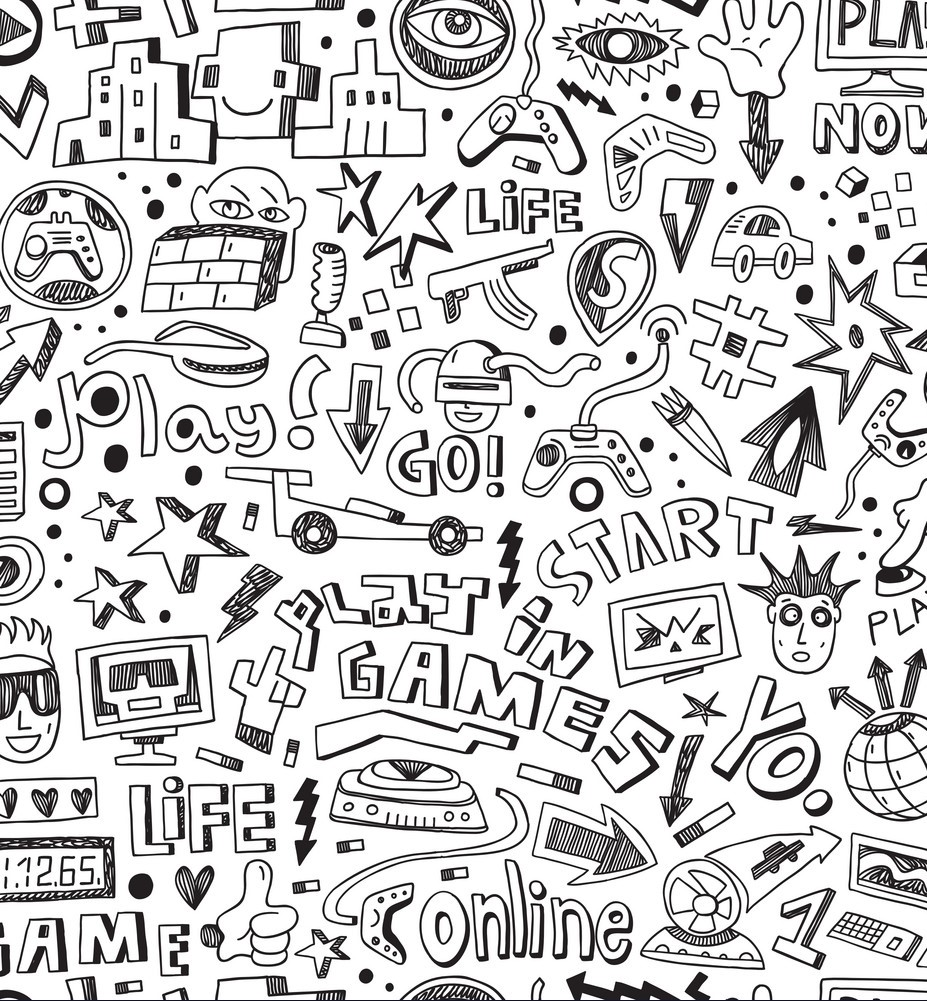 PLA
NOW
LiFE
S
#
play!
GO!
START
PLAY
iN
GAMES
PLA
YO!
LiFE
1.12.65.
GAME
online
1